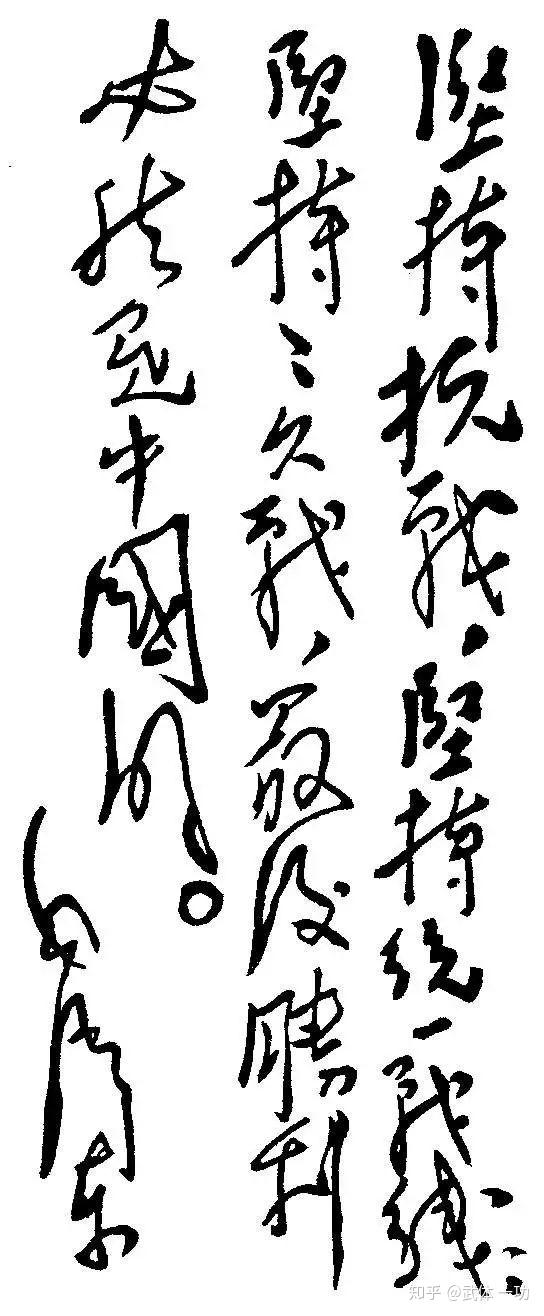 堅持抗戰，堅持統一戰綫，
堅持〻久戰，最後勝利
必然是中國的。
毛澤東
知乎 @武体一功